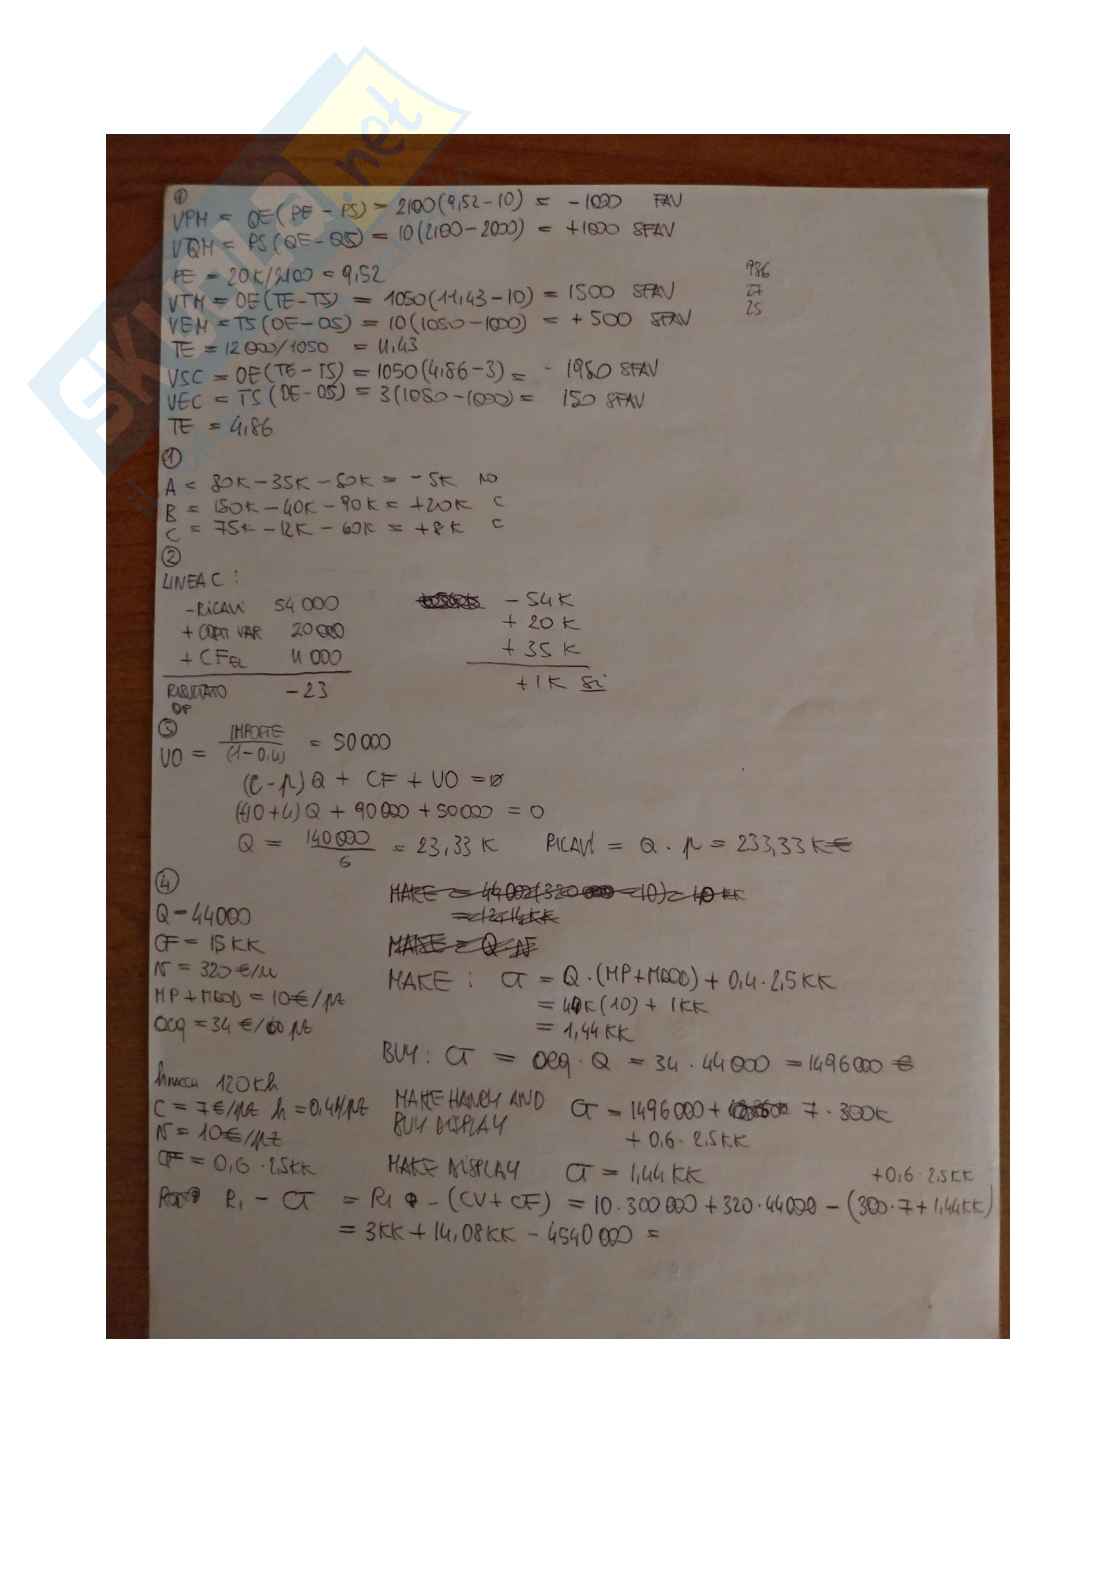 SKUOLA.net
①
VPM = QE(PE - PS) = 2100(9,52-10) = -1000 FAV
VQM = PS(QE-QS) = 10(2100-2000) = +1000 SFAV
PE = 20K/2100 = 9,52
986
27
25
VTM = OE(TE-TS) = 1050(11,43-10) = 1500 SFAV
VEM = TS(OE-OS) = 10(1050-1000) = +500 SFAV
TE = 12000/1050 = 11,43
VSC = OE(TE-TS) = 1050(4,86-3) = - 1950 SFAV
VEC = TS(OE-OS) = 3(1050-1000) = 150 SFAV
TE = 4,86
①
A = 80K-35K-50K = -5K NO
B = 150K-40K-90K = +20K C
C = 75K-12K-60K = +8K C
②
LINEA C :
-RICAVI 54000 - 54K
+ COSTI VAR 20000 + 20K
+ CFEL 11000 + 35K
RISULTATO OP -23 +1K SI
③
UO = IMPORTE / (1-0,4) = 50000
(c-p)Q + CF + UO = ø
(-10+4)Q + 90000 + 50000 = 0
Q = 140000 / 6 = 23,33 K RICAVI = Q · p = 233,33K€
④
Q = 44000
CF = 15KK
MP+MOD = 10€/pz
MAKE : CT = Q·(MP+MOD) + 0,4·2,5KK
= 44K(10) + 1KK
= 1,44KK
BUY : CT = · Q = 34 · 44000 = 1496000 €
120Kh
C = 7€/pz h = 0,4H/pz
MAKE HANDY AND BUY DISPLAY CT = 1496000 + 7 · 300K
+ 0,6 · 2,5KK
CF = 0,6 · 2,5KK
MAKE DISPLAY CT = 1,44KK +0,6·2,5KK
Ri - CT = Ri - (CV+CF) = 10·300000 + 320·44000 - (300·7+1,44KK)
= 3KK + 14,08KK - 4540000 =